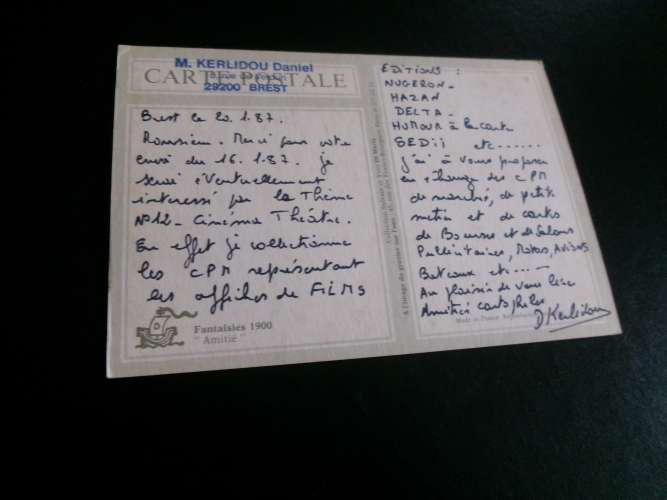 M. KERLIDOU Daniel
CARTE POSTALE
29200 BREST
Brest le 20.1.87.
Monsieur. Merci pour votre
envoi du 16.1.87. je
serai éventuellement
interessé par le Thème
N°12 - Cinéma Théâtre.
En effet je collectionne
les CPM représentant
les affiches de FILMS
Fantaisies 1900
"Amitié"
EDITIONS :
NUGERON -
HAZAN
DELTA -
HUMOUR à la carte
SEDii etc......
j'ai à vous proposer
en échange des CPM
de marché, de petits
métiers et de cartes
de Bourses et de Salons
Publicitaires, Motos, Avions
Bateaux etc -----
Au plaisir de vous lire
Amitiés cartophiles
D Kerlidou
Made in France